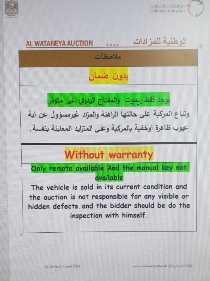 الوطنية للمزادات
AL WATANEYA AUCTION
ملاحظات
بدون ضمان
يوجد فقط ريموت والمفتاح اليدوي غير متوفر
وتباع المركبة على حالتها الراهنة والمزاد غير مسؤول عن أية
عيوب ظاهرة أو خفية بالمركبة وعلى المتزايد المعاينة بنفسه.
Without warranty
Only remote available And the manual key not
available
The vehicle is sold in its current condition and
the auction is not responsible for any visible or
hidden defects. and the bidder should do the
inspection with himself.